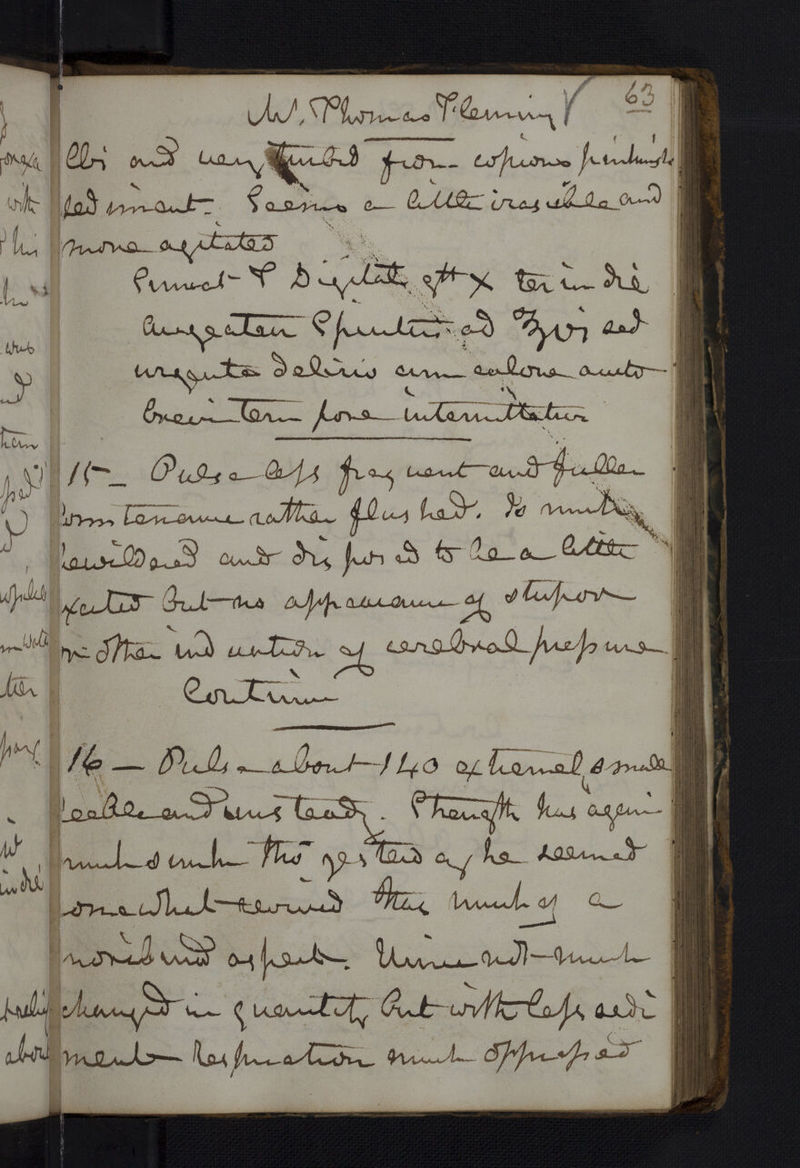 W. Thomas Fleming 63
℥bi and very turbid from copious pinkish
sediment. Seems a little irascible and
more agitated
Sumat Digital gtt x ter in die
Augeatur Spiritus ad ℥vi sed
urgente delirio cum calore aucto
brevi tem pore intermittatur
15_ Pulse less frequent and fuller
Countenance rather flushed. Is
bewildered and disposed to be a little
excited but no appearance of stupor
or other indication of cerebral pressure
Continue
16 — Pulse about 140 extremely small
feeble and unsteady. Strength has again
much sunk Tho' yesterday he seemed
somewhat revived Has much of a
moribund aspect. Urine not much
changed in quantity but with less sedi
ment Respiration much oppressed